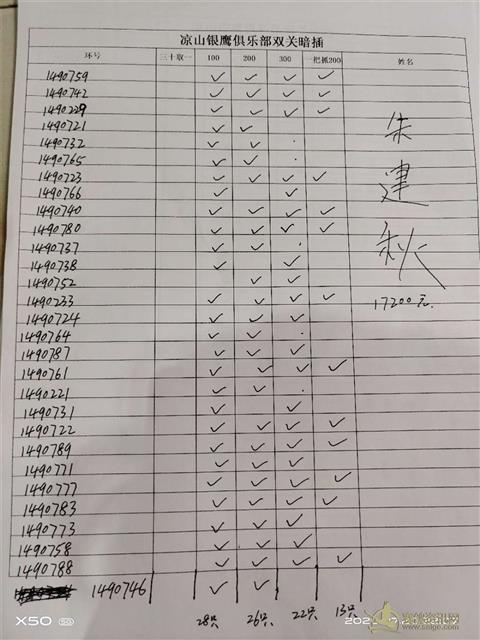 凉山银鹰俱乐部双关暗插
环号 三十取一 100 200 300 一把抓200 姓名
1490759 ✓ ✓ ✓ ✓
1490742 ✓ ✓ ✓ ✓
1490229 ✓ ✓ ✓ ✓
1490721 ✓ ✓
1490732 ✓ ✓
1490765 ✓ ✓
1490723 ✓ ✓ ✓ ✓
1490766 ✓ ✓
1490740 ✓ ✓ ✓ ✓
1490780 ✓ ✓ ✓ ✓
1490737 ✓ ✓
1490738 ✓ ✓
1490752 ✓ ✓
1490233 ✓ ✓ ✓ ✓
1490724 ✓ ✓ ✓
1490764 ✓ ✓
1490787 ✓ ✓ ✓
1490761 ✓ ✓ ✓ ✓
1490221 ✓ ✓
1490731 ✓ ✓
1490722 ✓ ✓ ✓ ✓
1490789 ✓ ✓ ✓ ✓
1490771 ✓ ✓ ✓
1490777 ✓ ✓ ✓ ✓
1490783 ✓ ✓ ✓ ✓
1490773 ✓ ✓ ✓
1490758 ✓ ✓ ✓
1490788 ✓ ✓ ✓ ✓
1490746 ✓ ✓
28只 26只 22只 13只
朱建秋
17200元.
X50 5G